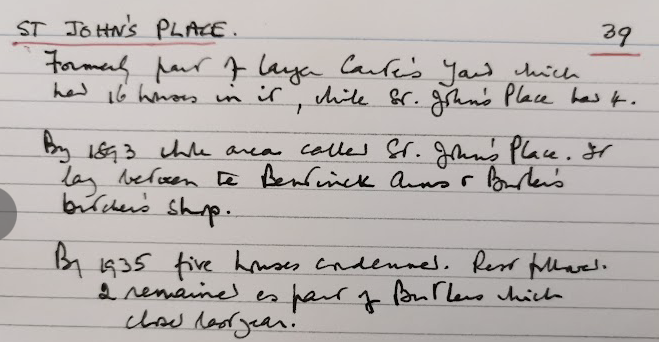 ST JOHN'S PLACE. 39
Formerly part of larger Carter's Yard which
had 16 houses in it, while St. John's Place had 4.
By 1893 whole area called St. John's Place. It
lay between the Bentinck Arms & Butler's
butcher's shop.
By 1935 five houses condemned. Rest followed.
2 remained as part of Butlers which
closed last year.